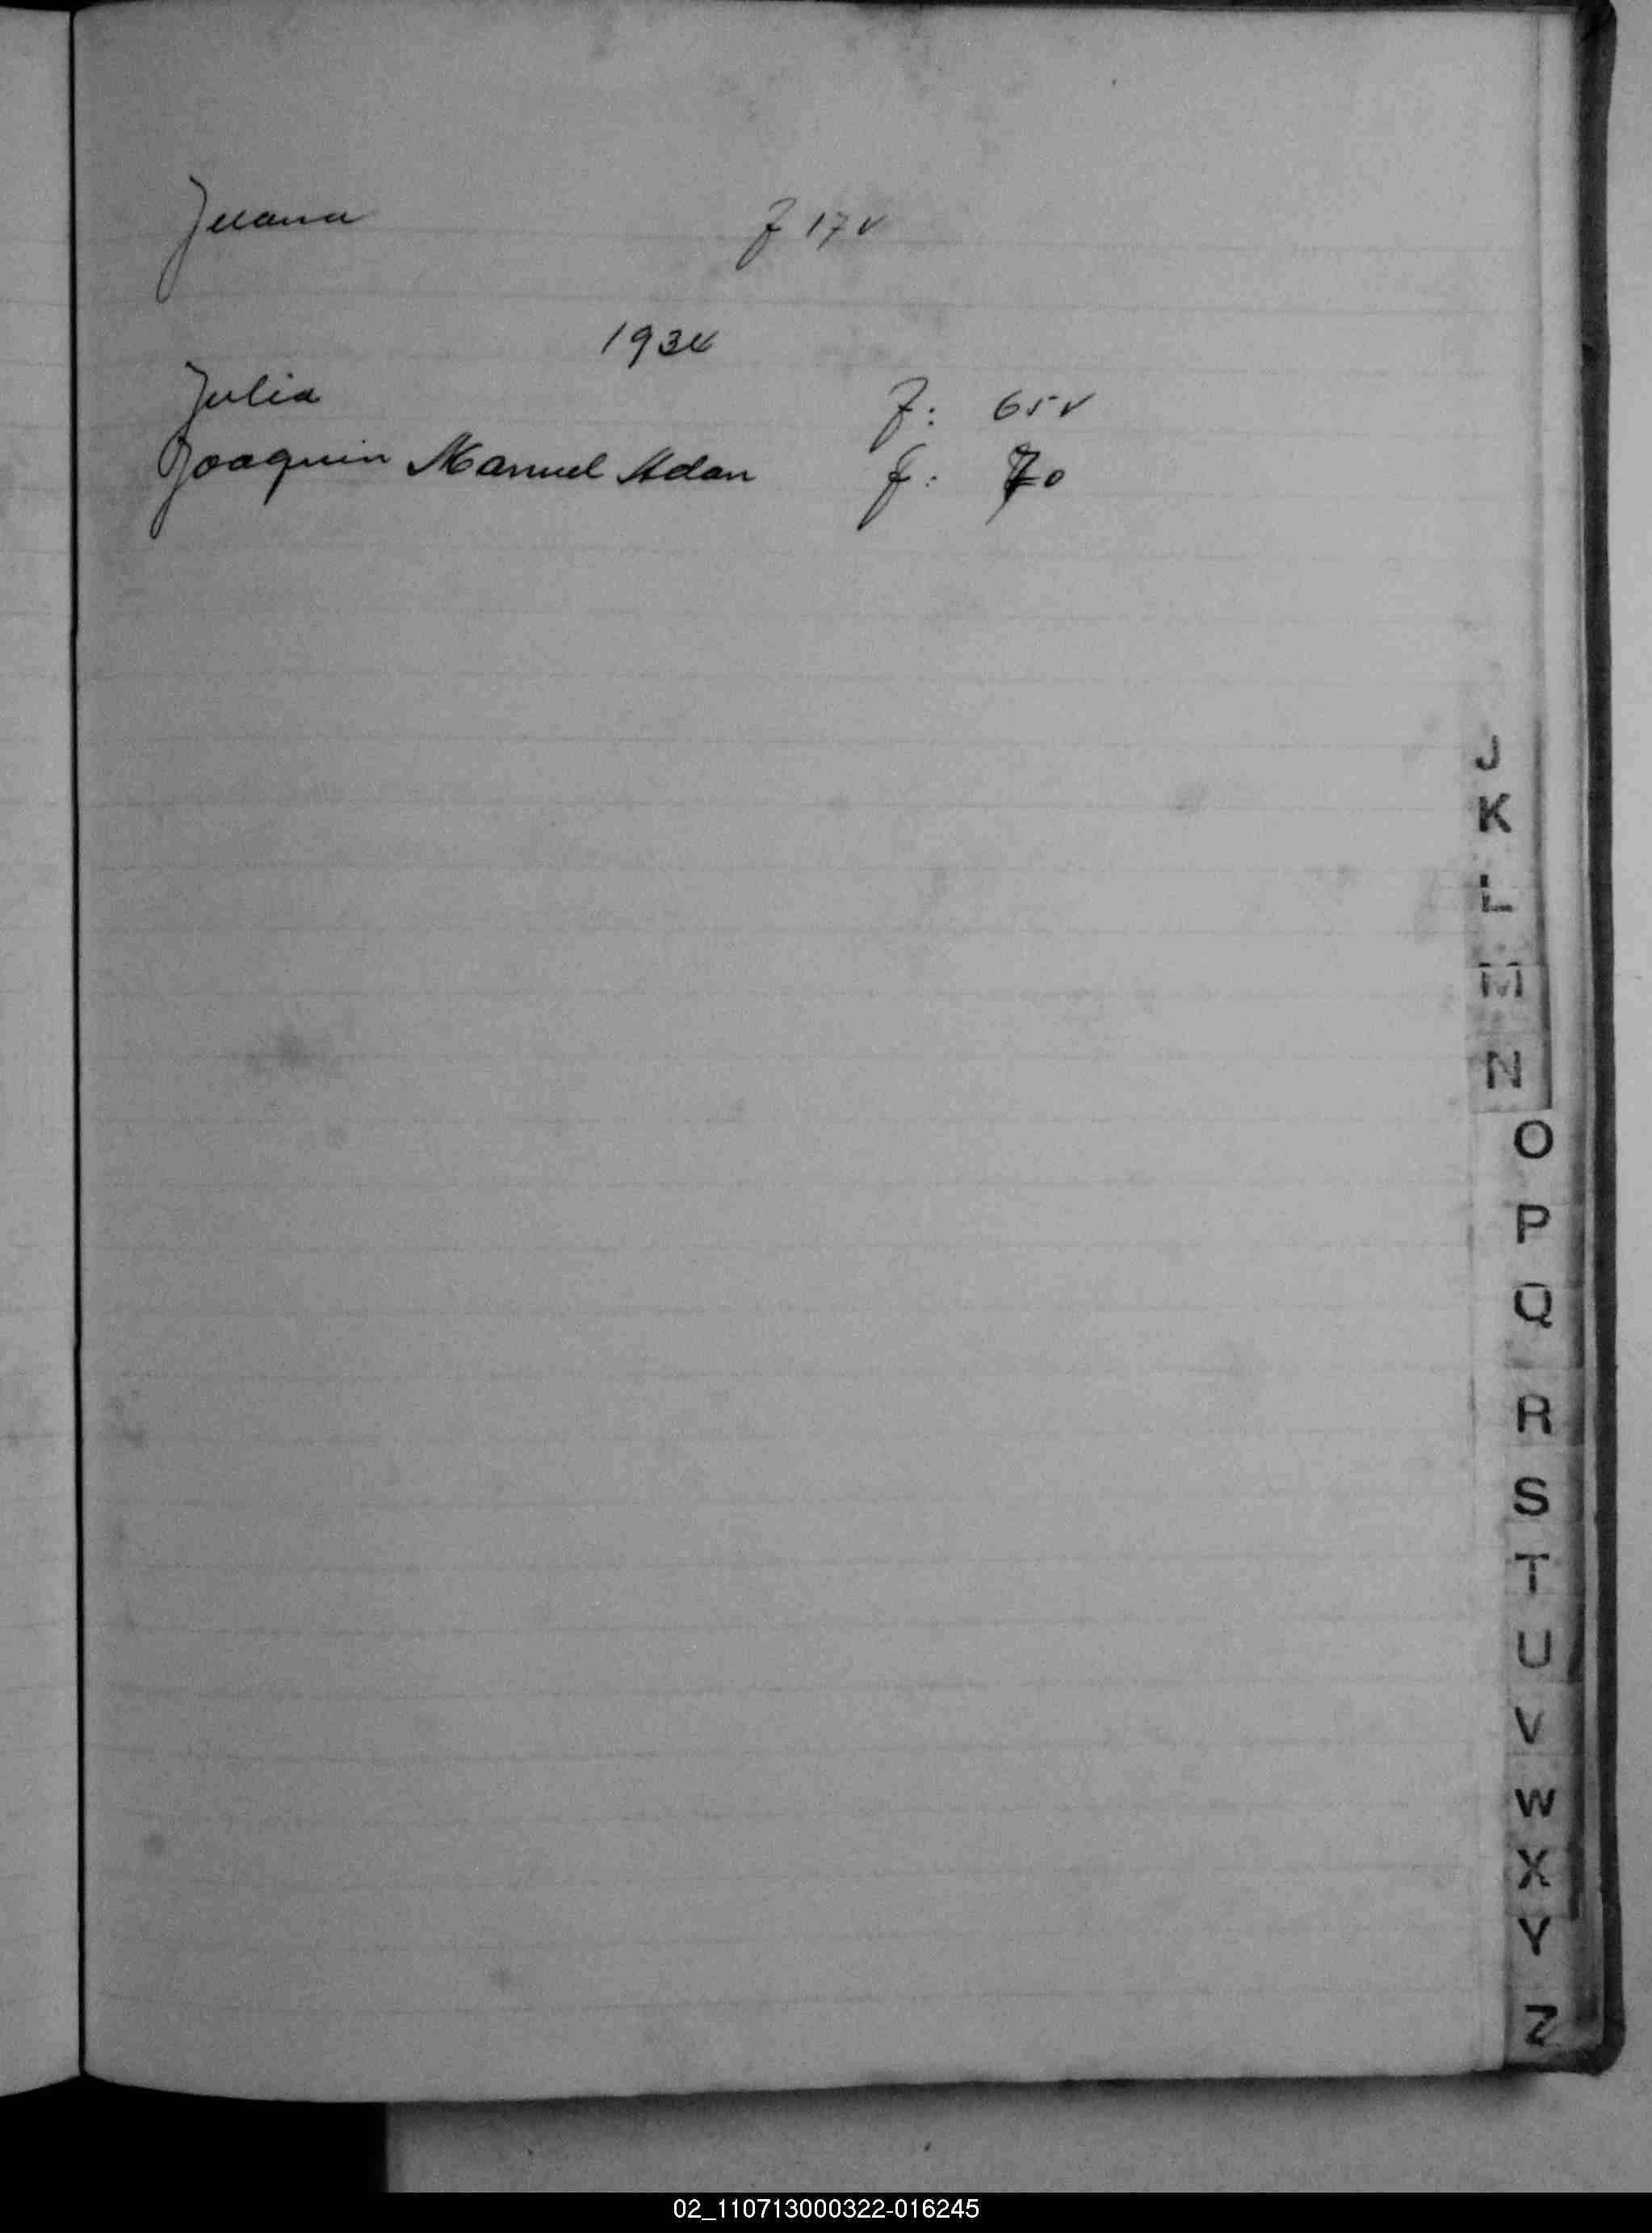 Juana f 17v
1934
Julia f: 65v
Joaquin Manuel Adan f: 70
J
K
L
M
N
O
P
Q
R
S
T
U
V
W
X
Y
Z
02_110713000322-016245